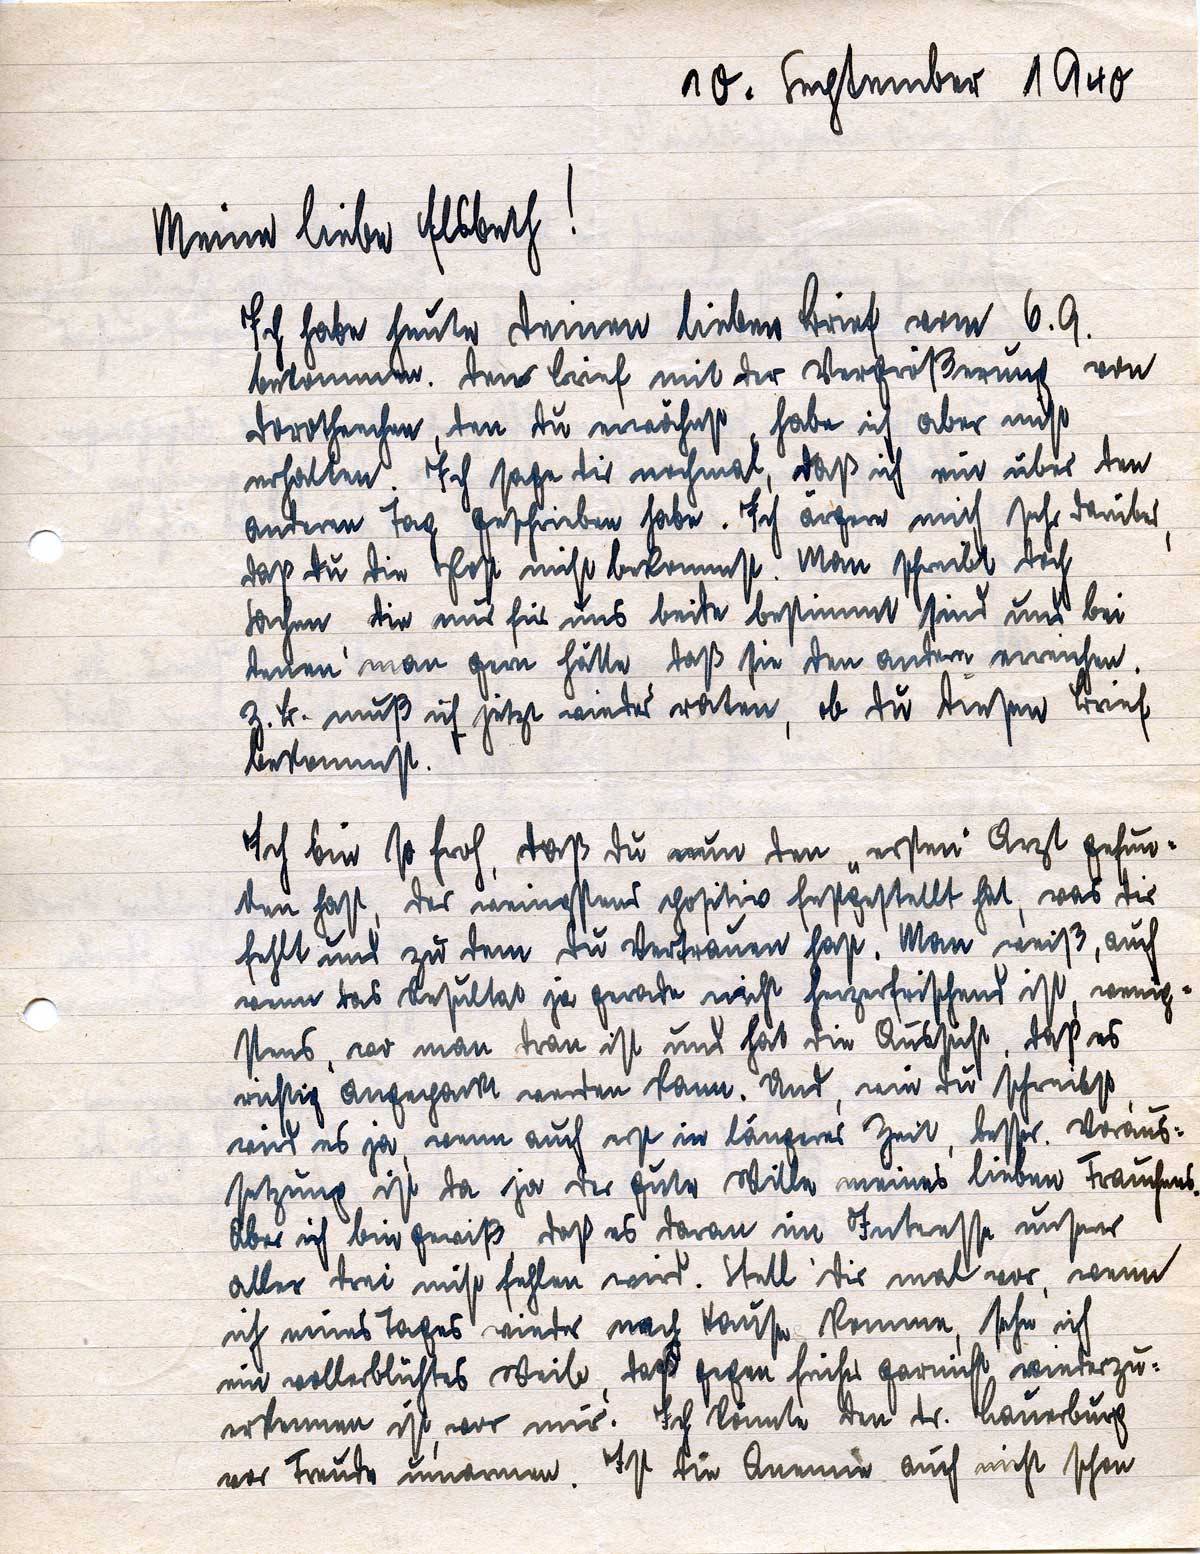 10. September 1940
Meine liebe Elsbeth!
Ich habe heute deinen lieben Brief vom 6.9.
bekommen. Den Brief mit der Vergrößerung von
Dorotheechen, den du erwähnst, habe ich aber nicht
erhalten. Ich sage dir nochmal, daß ich ein über den
anderen Tag geschrieben habe. Ich ärgere mich sehr darüber,
daß du die Post nicht bekommst. Man schreibt doch
Sachen die nur für uns beide bestimmt sind und bei
denen man gern hätte daß sie den andern erreichen.
Z.B. muß ich jetzt wieder raten, ob du diesen Brief
bekommst.
Ich bin so froh, daß du nun den „ersten" Arzt gefun-
den hast, der wenigstens positiv festgestellt hat, was dir
fehlt und zu dem du Vertrauen hast. Man weiß, auch
wenn das Resultat ja gerade nicht herzerfrischend ist, wenig-
stens, wo man dran ist und hat die Aussicht, daß es
richtig angepackt werden kann. Und, wie du schreibst,
wird es ja, wenn auch erst in längerer Zeit, besser. Voraus-
setzung ist da ja der gute Wille meines lieben Frauchens.
Aber ich bin gewiß, daß es daran im Interesse unserer
aller drei nicht fehlen wird. Stell dir mal vor, wenn
ich eines Tages wieder nach Hause komme, sehe ich
ein vollerblühtes Weib, daß gegen früher garnicht wiederzu-
erkennen ist, vor mir. Ich könnte den Dr. Lauerburg
vor Freude umarmen. Ist die Anemie auch nicht schon